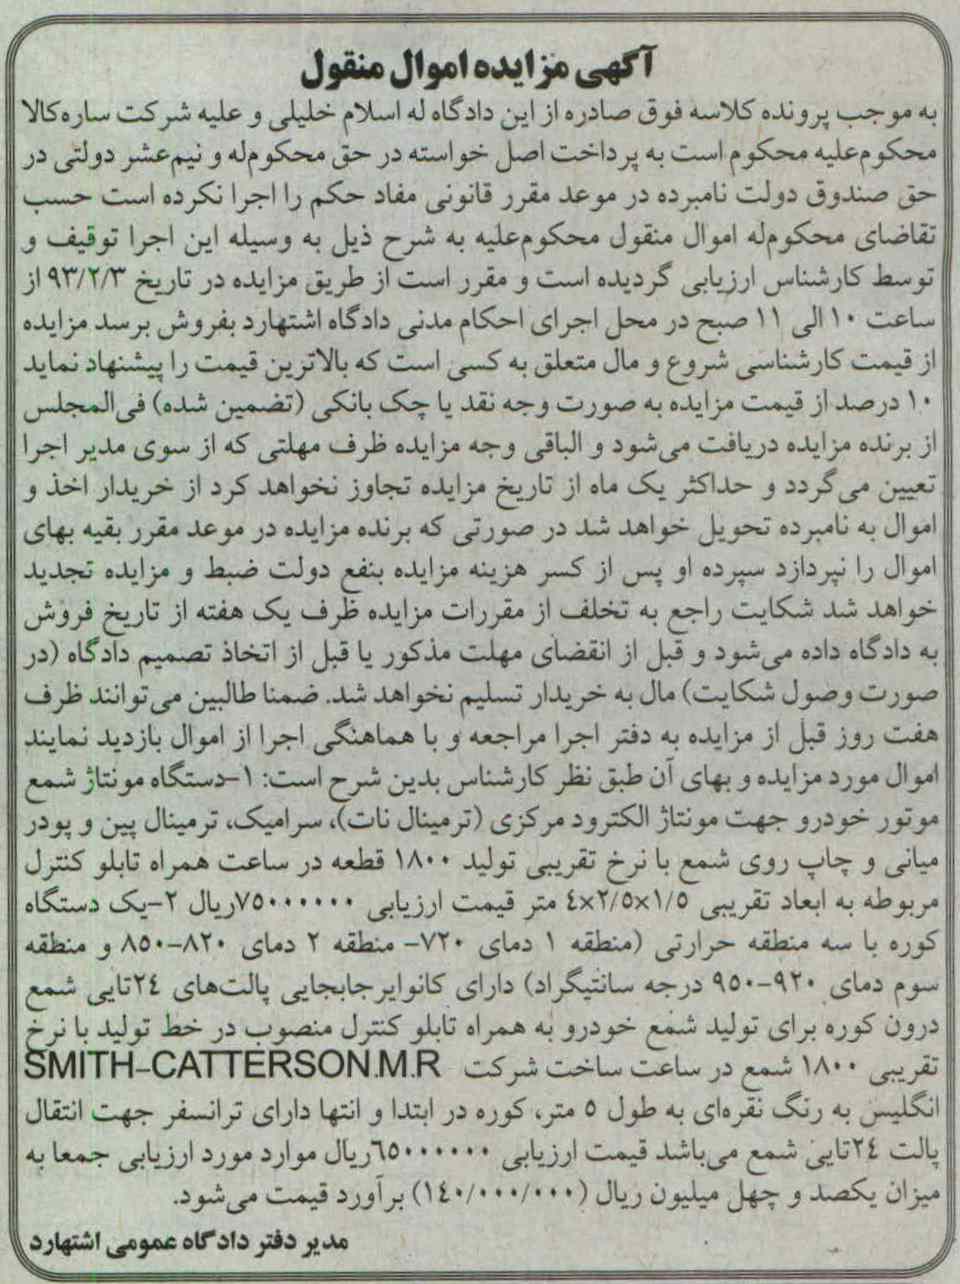 آگهی مزایده اموال منقول
به موجب پرونده کلاسه فوق صادره از این دادگاه له اسلام خلیلی و علیه شرکت ساره‌کالا
محکوم‌علیه محکوم است به پرداخت اصل خواسته در حق محکوم‌له و نیم‌عشر دولتی در
حق صندوق دولت نامبرده در موعد مقرر قانونی مفاد حکم را اجرا نکرده است حسب
تقاضای محکوم‌له اموال منقول محکوم‌علیه به شرح ذیل به وسیله این اجرا توقیف و
توسط کارشناس ارزیابی گردیده است و مقرر است از طریق مزایده در تاریخ ۹۳/۲/۳ از
ساعت ۱۰ الی ۱۱ صبح در محل اجرای احکام مدنی دادگاه اشتهارد بفروش برسد مزایده
از قیمت کارشناسی شروع و مال متعلق به کسی است که بالاترین قیمت را پیشنهاد نماید
۱۰ درصد از قیمت مزایده به صورت وجه نقد یا چک بانکی (تضمین شده) فی‌المجلس
از برنده مزایده دریافت می‌شود و الباقی وجه مزایده ظرف مهلتی که از سوی مدیر اجرا
تعیین می‌گردد و حداکثر یک ماه از تاریخ مزایده تجاوز نخواهد کرد از خریدار اخذ و
اموال به نامبرده تحویل خواهد شد در صورتی که برنده مزایده در موعد مقرر بقیه بهای
اموال را نپردازد سپرده او پس از کسر هزینه مزایده بنفع دولت ضبط و مزایده تجدید
خواهد شد شکایت راجع به تخلف از مقررات مزایده ظرف یک هفته از تاریخ فروش
به دادگاه داده می‌شود و قبل از انقضای مهلت مذکور یا قبل از اتخاذ تصمیم دادگاه (در
صورت وصول شکایت) مال به خریدار تسلیم نخواهد شد. ضمنا طالبین می‌توانند ظرف
هفت روز قبل از مزایده به دفتر اجرا مراجعه و با هماهنگی اجرا از اموال بازدید نمایند
اموال مورد مزایده و بهای آن طبق نظر کارشناس بدین شرح است: ۱-دستگاه مونتاژ شمع
موتور خودرو جهت مونتاژ الکترود مرکزی (ترمینال نات)، سرامیک، ترمینال پین و پودر
میانی و چاپ روی شمع با نرخ تقریبی تولید ۱۸۰۰ قطعه در ساعت همراه تابلو کنترل
مربوطه به ابعاد تقریبی ۱/۵×۲/۵×٤ متر قیمت ارزیابی ۷۵۰۰۰۰۰۰ریال ۲-یک دستگاه
کوره با سه منطقه حرارتی (منطقه ۱ دمای ۷۲۰- منطقه ۲ دمای ۸۲۰-۸۵۰ و منظقه
سوم دمای ۹۲۰-۹۵۰ درجه سانتیگراد) دارای کانوایرجابجایی پالت‌های ۲٤تایی شمع
درون کوره برای تولید شمع خودرو به همراه تابلو کنترل منصوب در خط تولید با نرخ
تقریبی ۱۸۰۰ شمع در ساعت ساخت شرکت SMITH-CATTERSON.M.R
انگلیس به رنگ نقره‌ای به طول ۵ متر، کوره در ابتدا و انتها دارای ترانسفر جهت انتقال
پالت ۲٤تایی شمع می‌باشد قیمت ارزیابی ٦۵۰۰۰۰۰۰ریال موارد مورد ارزیابی جمعا به
میزان یکصد و چهل میلیون ریال (۱٤۰/۰۰۰/۰۰۰) برآورد قیمت می‌شود.
مدیر دفتر دادگاه عمومی اشتهارد